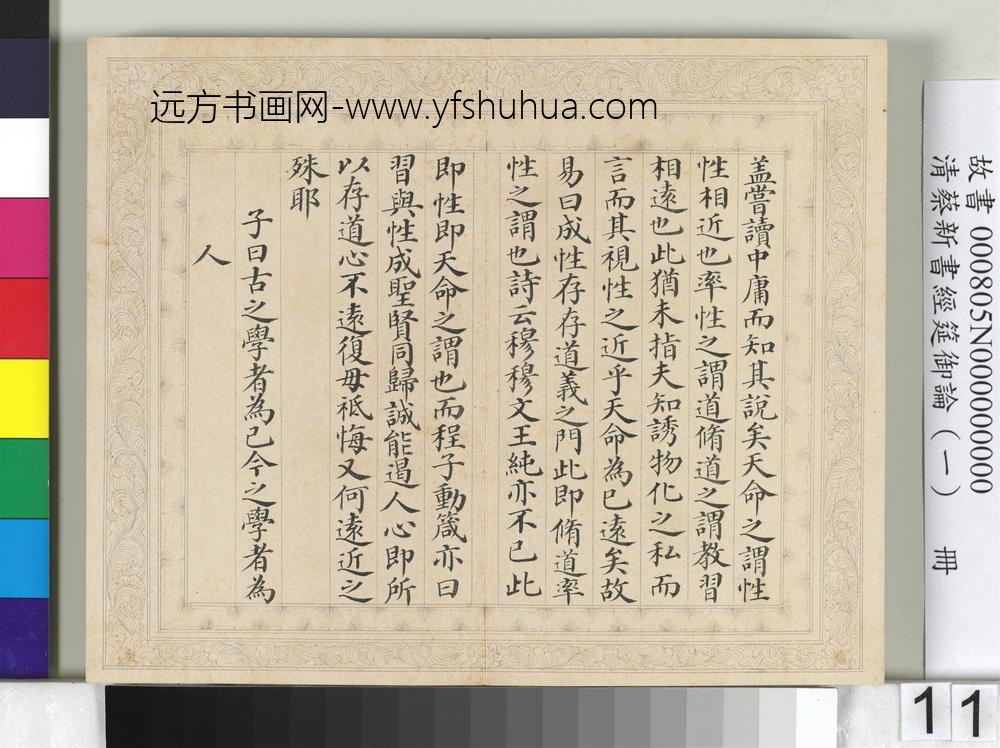 远方书画网-www.yfshuhua.com
蓋嘗讀中庸而知其說矣天命之謂性
性相近也率性之謂道脩道之謂教習
相遠也此猶未指夫知誘物化之私而
言而其視性之近乎天命為已遠矣故
易曰成性存存道義之門此即脩道率
性之謂也詩云穆穆文王純亦不已此
即性即天命之謂也而程子動箴亦曰
習與性成聖賢同歸誠能遏人心即所
以存道心不遠復毋祗悔又何遠近之
殊耶
子曰古之學者為己今之學者為
人
故書 000805N000000000
清蔡新書經筵御論（一） 冊
11